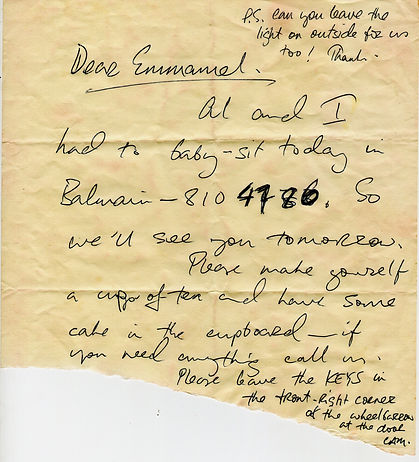 P.S. can you leave the
light on outside for us
too! Thank.
Dear Emmanuel.
Al and I
had to baby-sit today in
Balmain - 810 4786. So
we'll see you tomorrow.
Please make yourself
a cup of tea and have some
cake in the cupboard - if
you need anything call us.
Please leave the KEYS in
the front-right corner
of the wheelbarrow
at the door